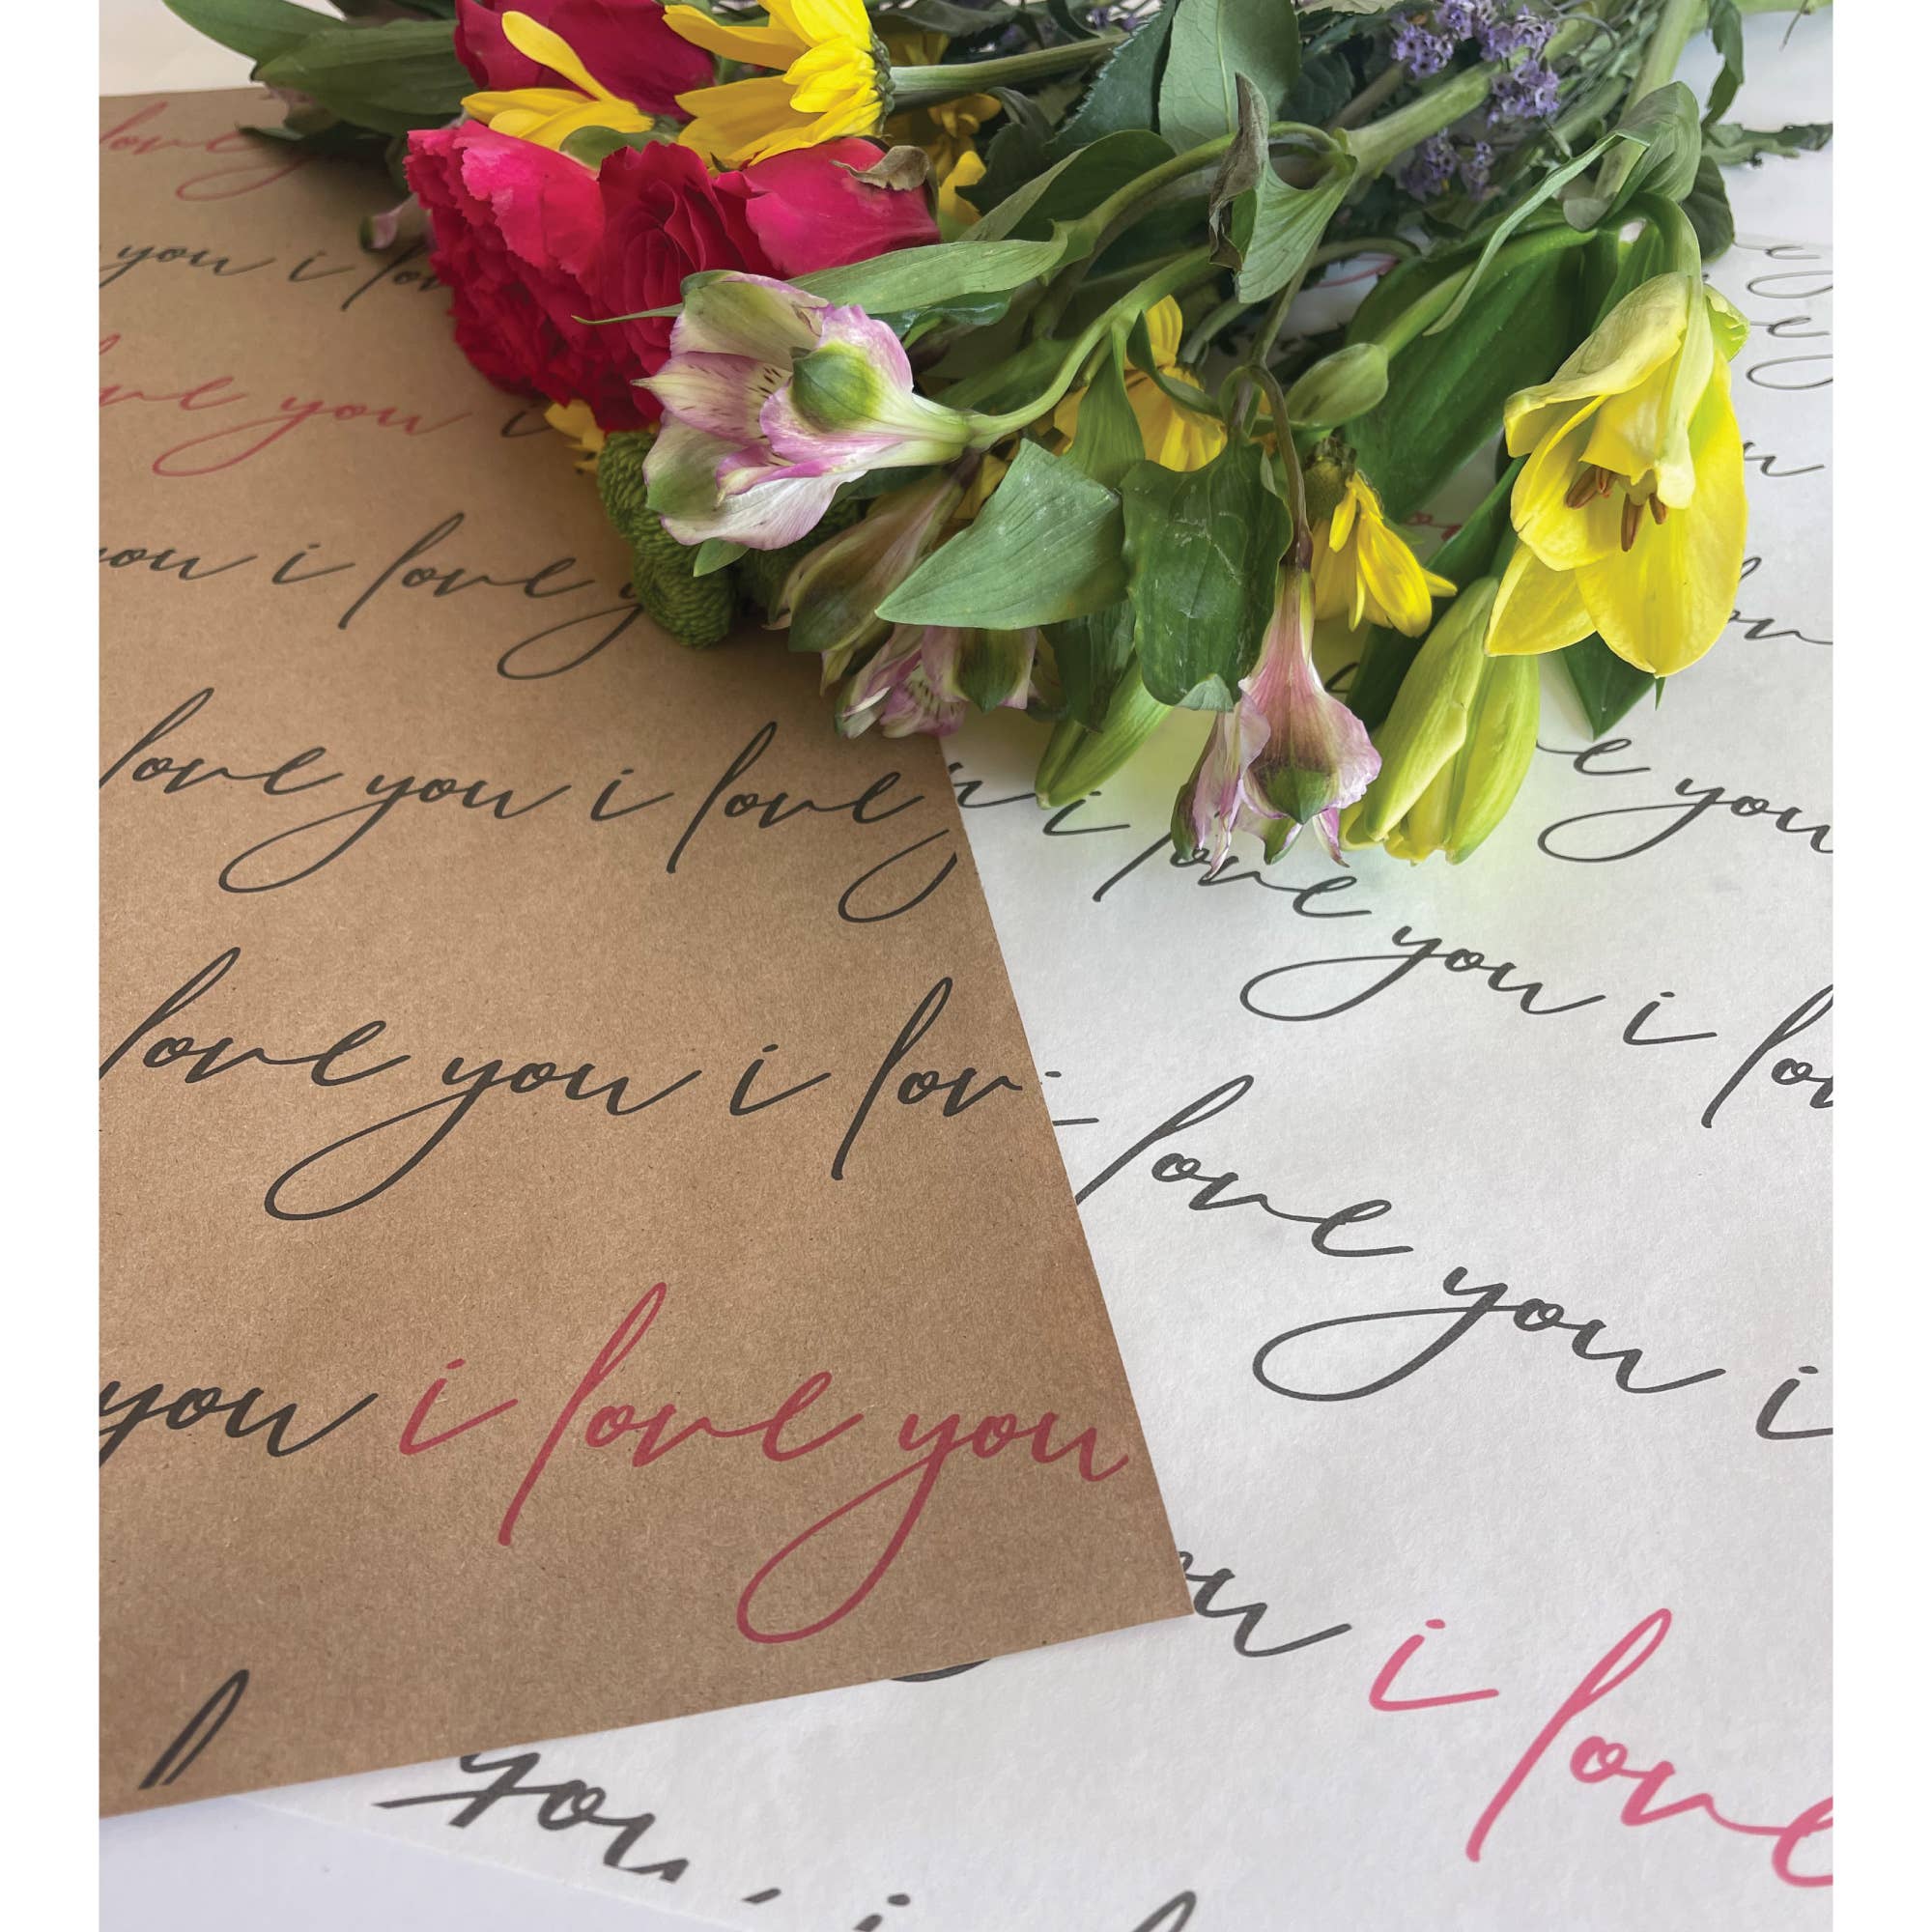 love
you i lov
love you i
you i love y
love you i love y
love you i lov
you i love you
i love you i lov
e you
love you i
u i love
you